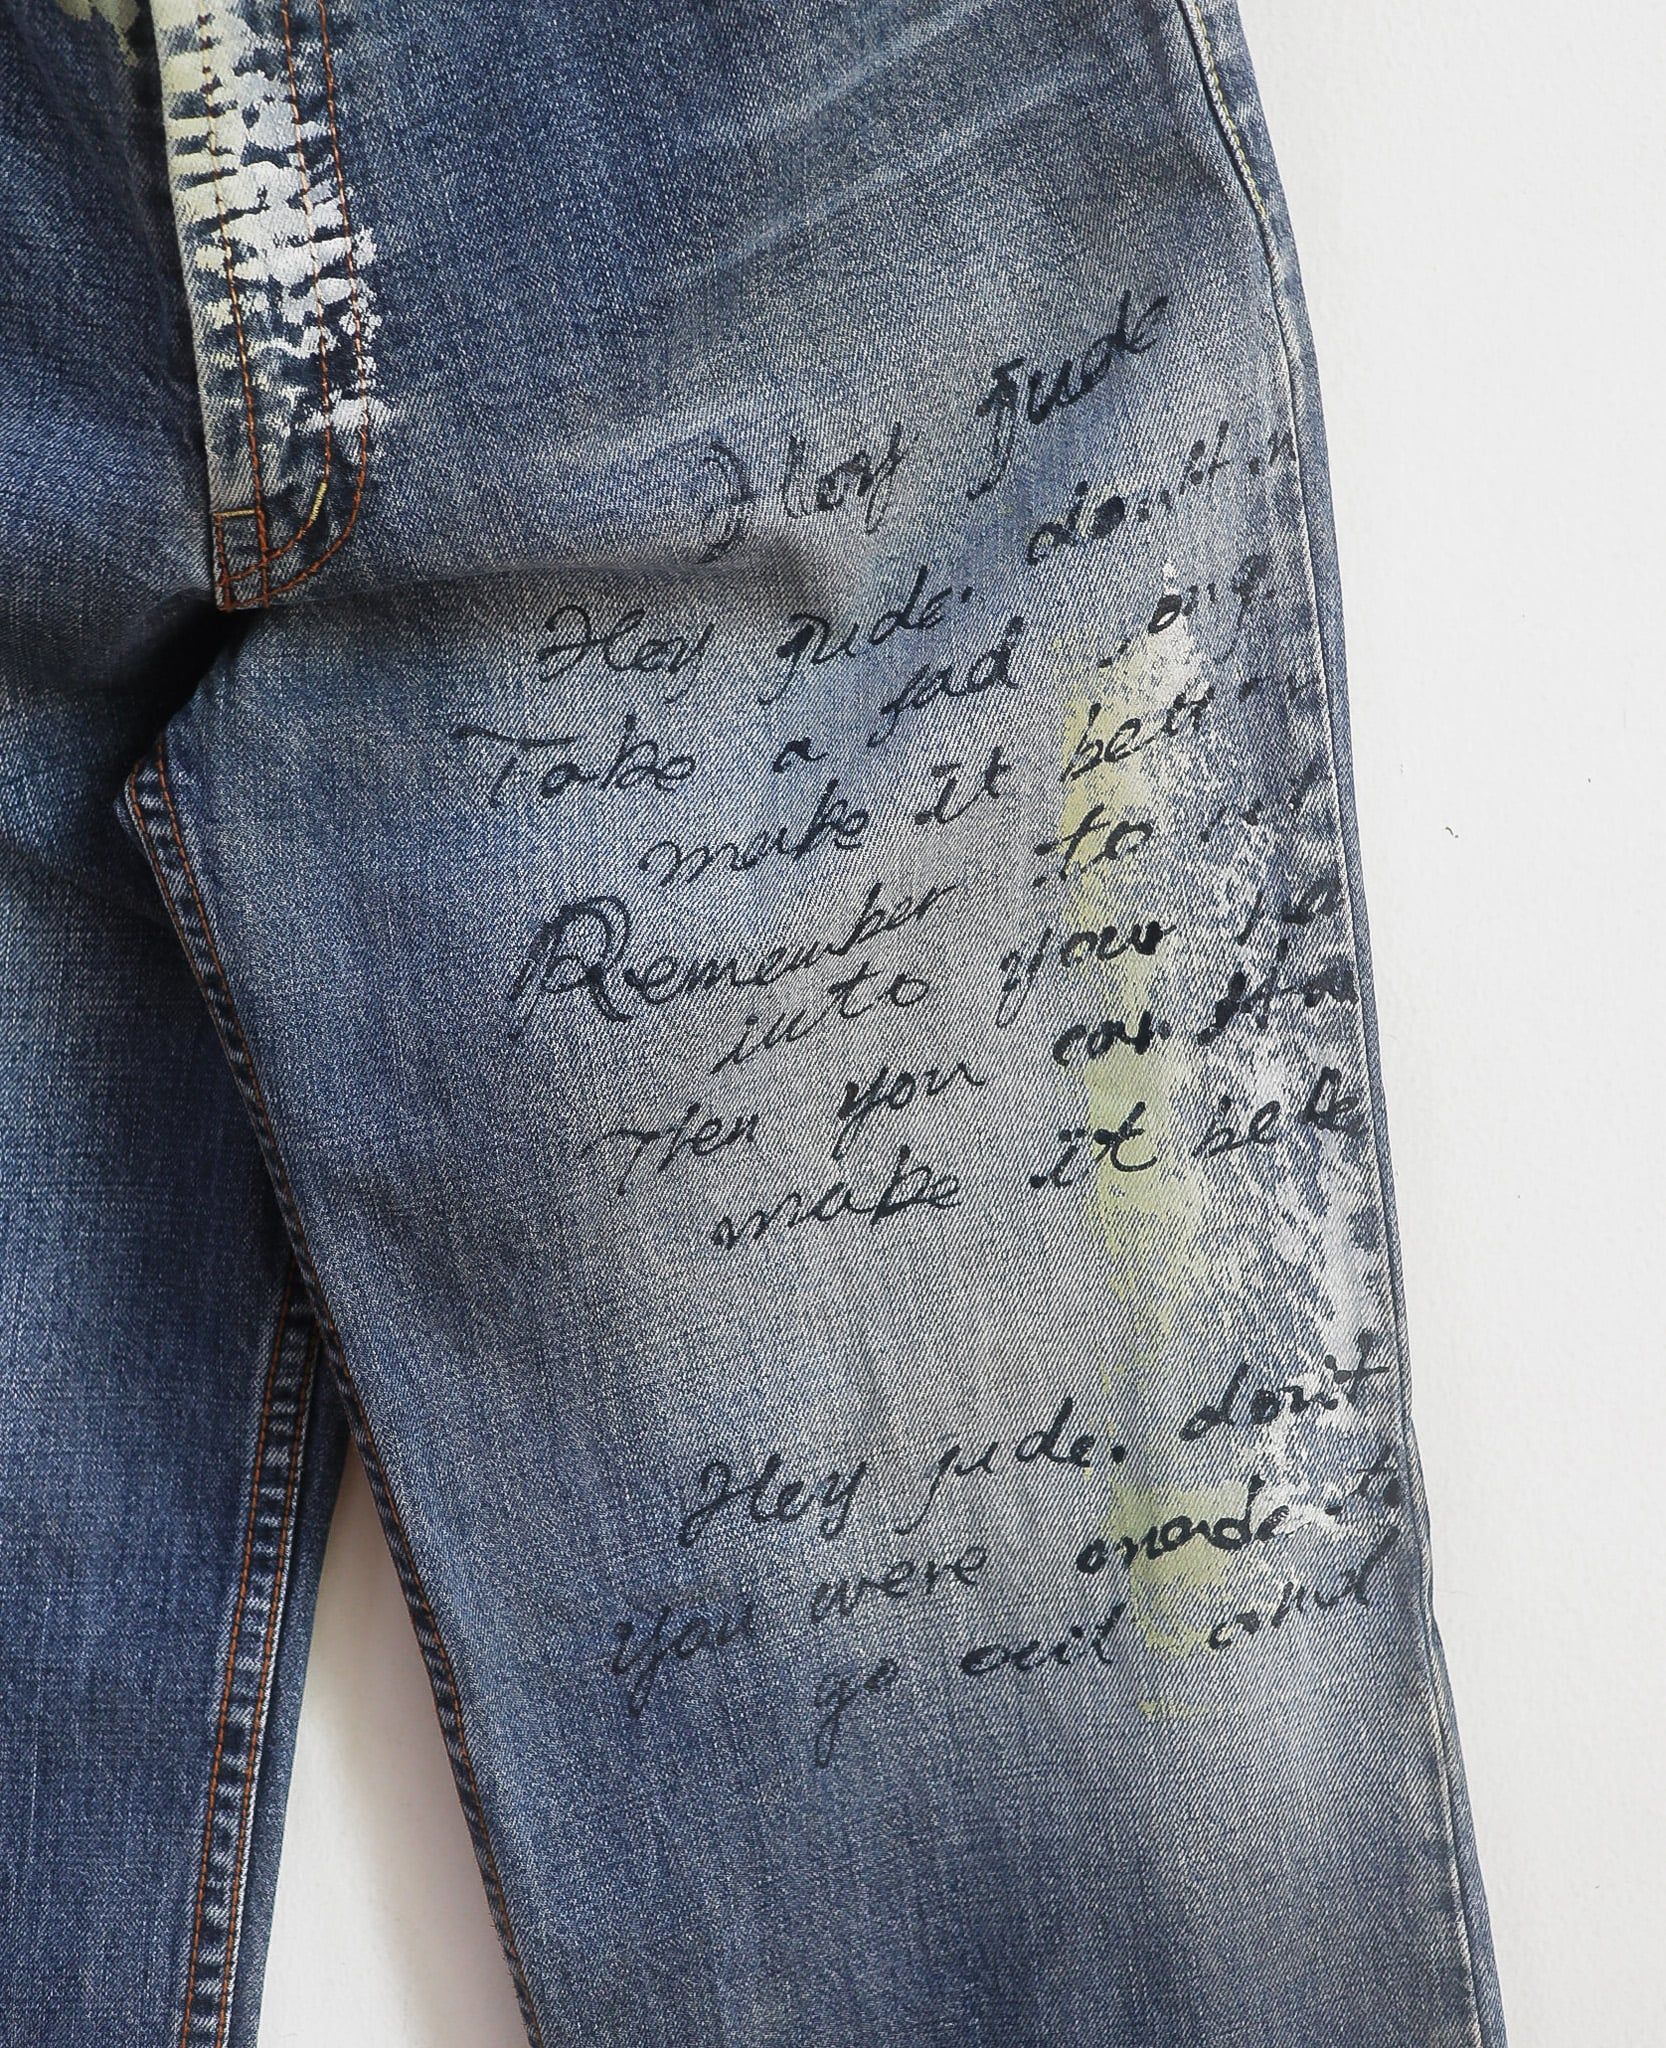 Hey Jude
Hey Jude, don't
Take a sad song
make it better
Remember to
into your
Then you can
make it bette
Hey jude, don't
you were made to
go out and